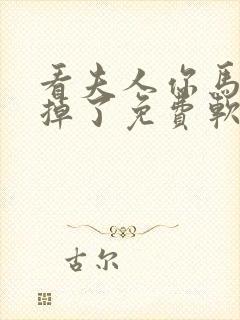 看夫人你馬
掉了免費軟
古尔